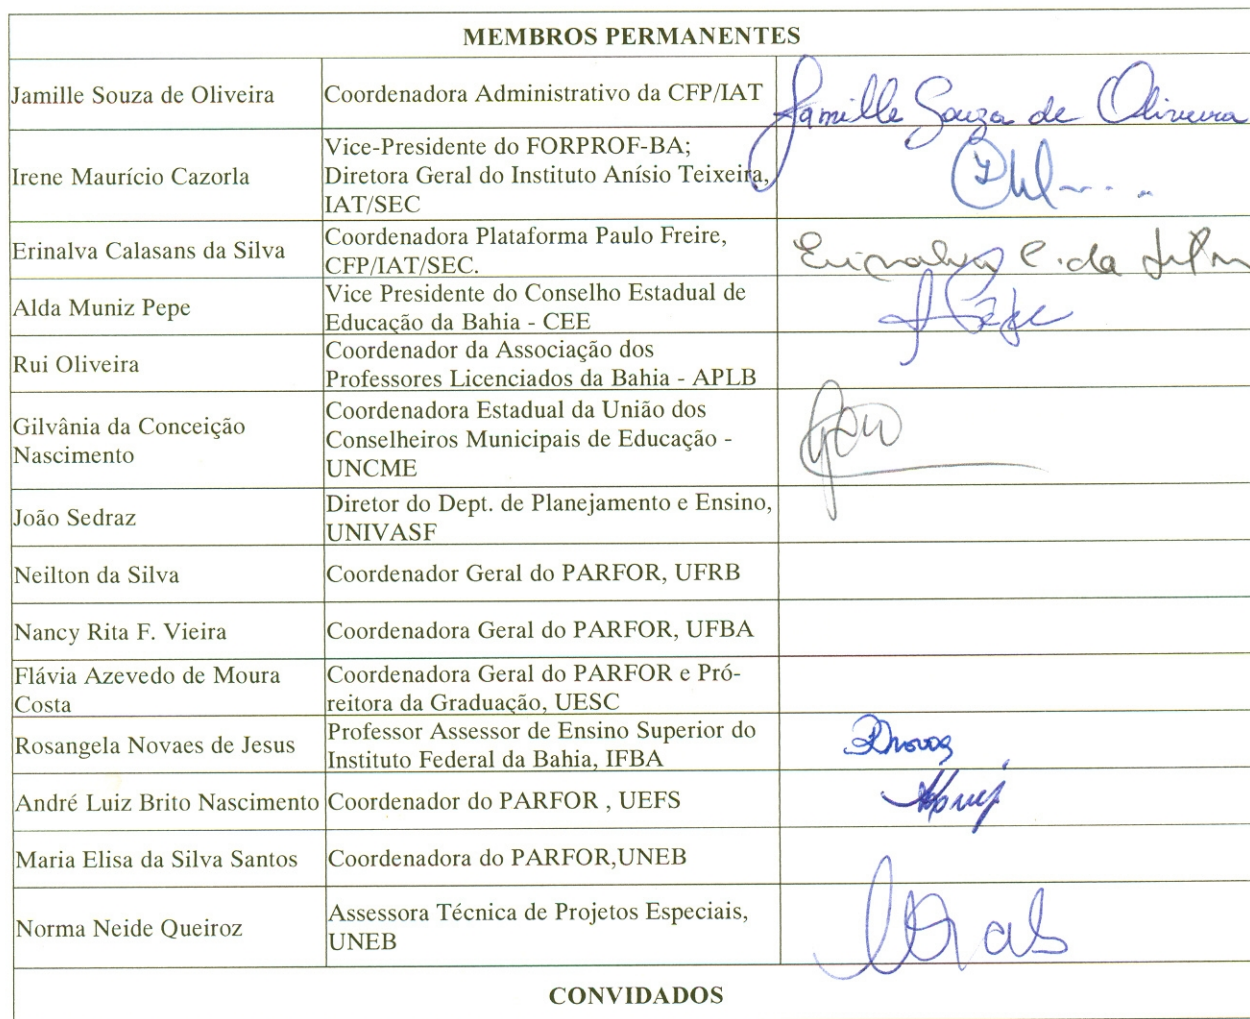 MEMBROS PERMANENTES
Jamille Souza de Oliveira
Coordenadora Administrativo da CFP/IAT
Jamille Souza de Oliveira
Irene Maurício Cazorla
Vice-Presidente do FORPROF-BA;
Diretora Geral do Instituto Anísio Teixeira,
IAT/SEC
Erinalva Calasans da Silva
Coordenadora Plataforma Paulo Freire,
CFP/IAT/SEC.
Erinalva C. da Silva
Alda Muniz Pepe
Vice Presidente do Conselho Estadual de
Educação da Bahia - CEE
A Pepe
Rui Oliveira
Coordenador da Associação dos
Professores Licenciados da Bahia - APLB
Gilvânia da Conceição
Nascimento
Coordenadora Estadual da União dos
Conselheiros Municipais de Educação -
UNCME
João Sedraz
Diretor do Dept. de Planejamento e Ensino,
UNIVASF
Neilton da Silva
Coordenador Geral do PARFOR, UFRB
Nancy Rita F. Vieira
Coordenadora Geral do PARFOR, UFBA
Flávia Azevedo de Moura
Costa
Coordenadora Geral do PARFOR e Pró-
reitora da Graduação, UESC
Rosangela Novaes de Jesus
Professor Assessor de Ensino Superior do
Instituto Federal da Bahia, IFBA
André Luiz Brito Nascimento
Coordenador do PARFOR , UEFS
Maria Elisa da Silva Santos
Coordenadora do PARFOR,UNEB
Norma Neide Queiroz
Assessora Técnica de Projetos Especiais,
UNEB
CONVIDADOS